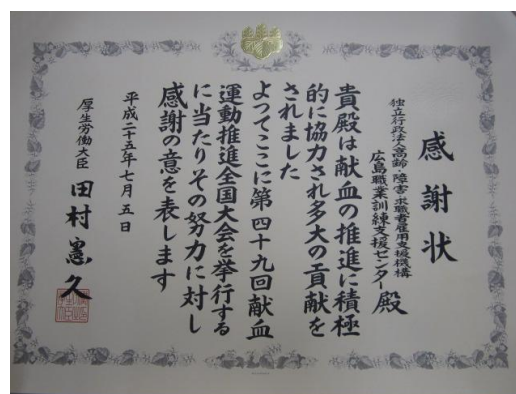 感謝状
独立行政法人高齢・障害・求職者雇用支援機構
広島職業訓練支援センター殿
貴殿は献血の推進に積極
的に協力され多大の貢献を
されました
よってここに第四十九回献血
運動推進全国大会を挙行する
に当たりその努力に対し
感謝の意を表します
平成二十五年七月五日
厚生労働大臣 田村憲久